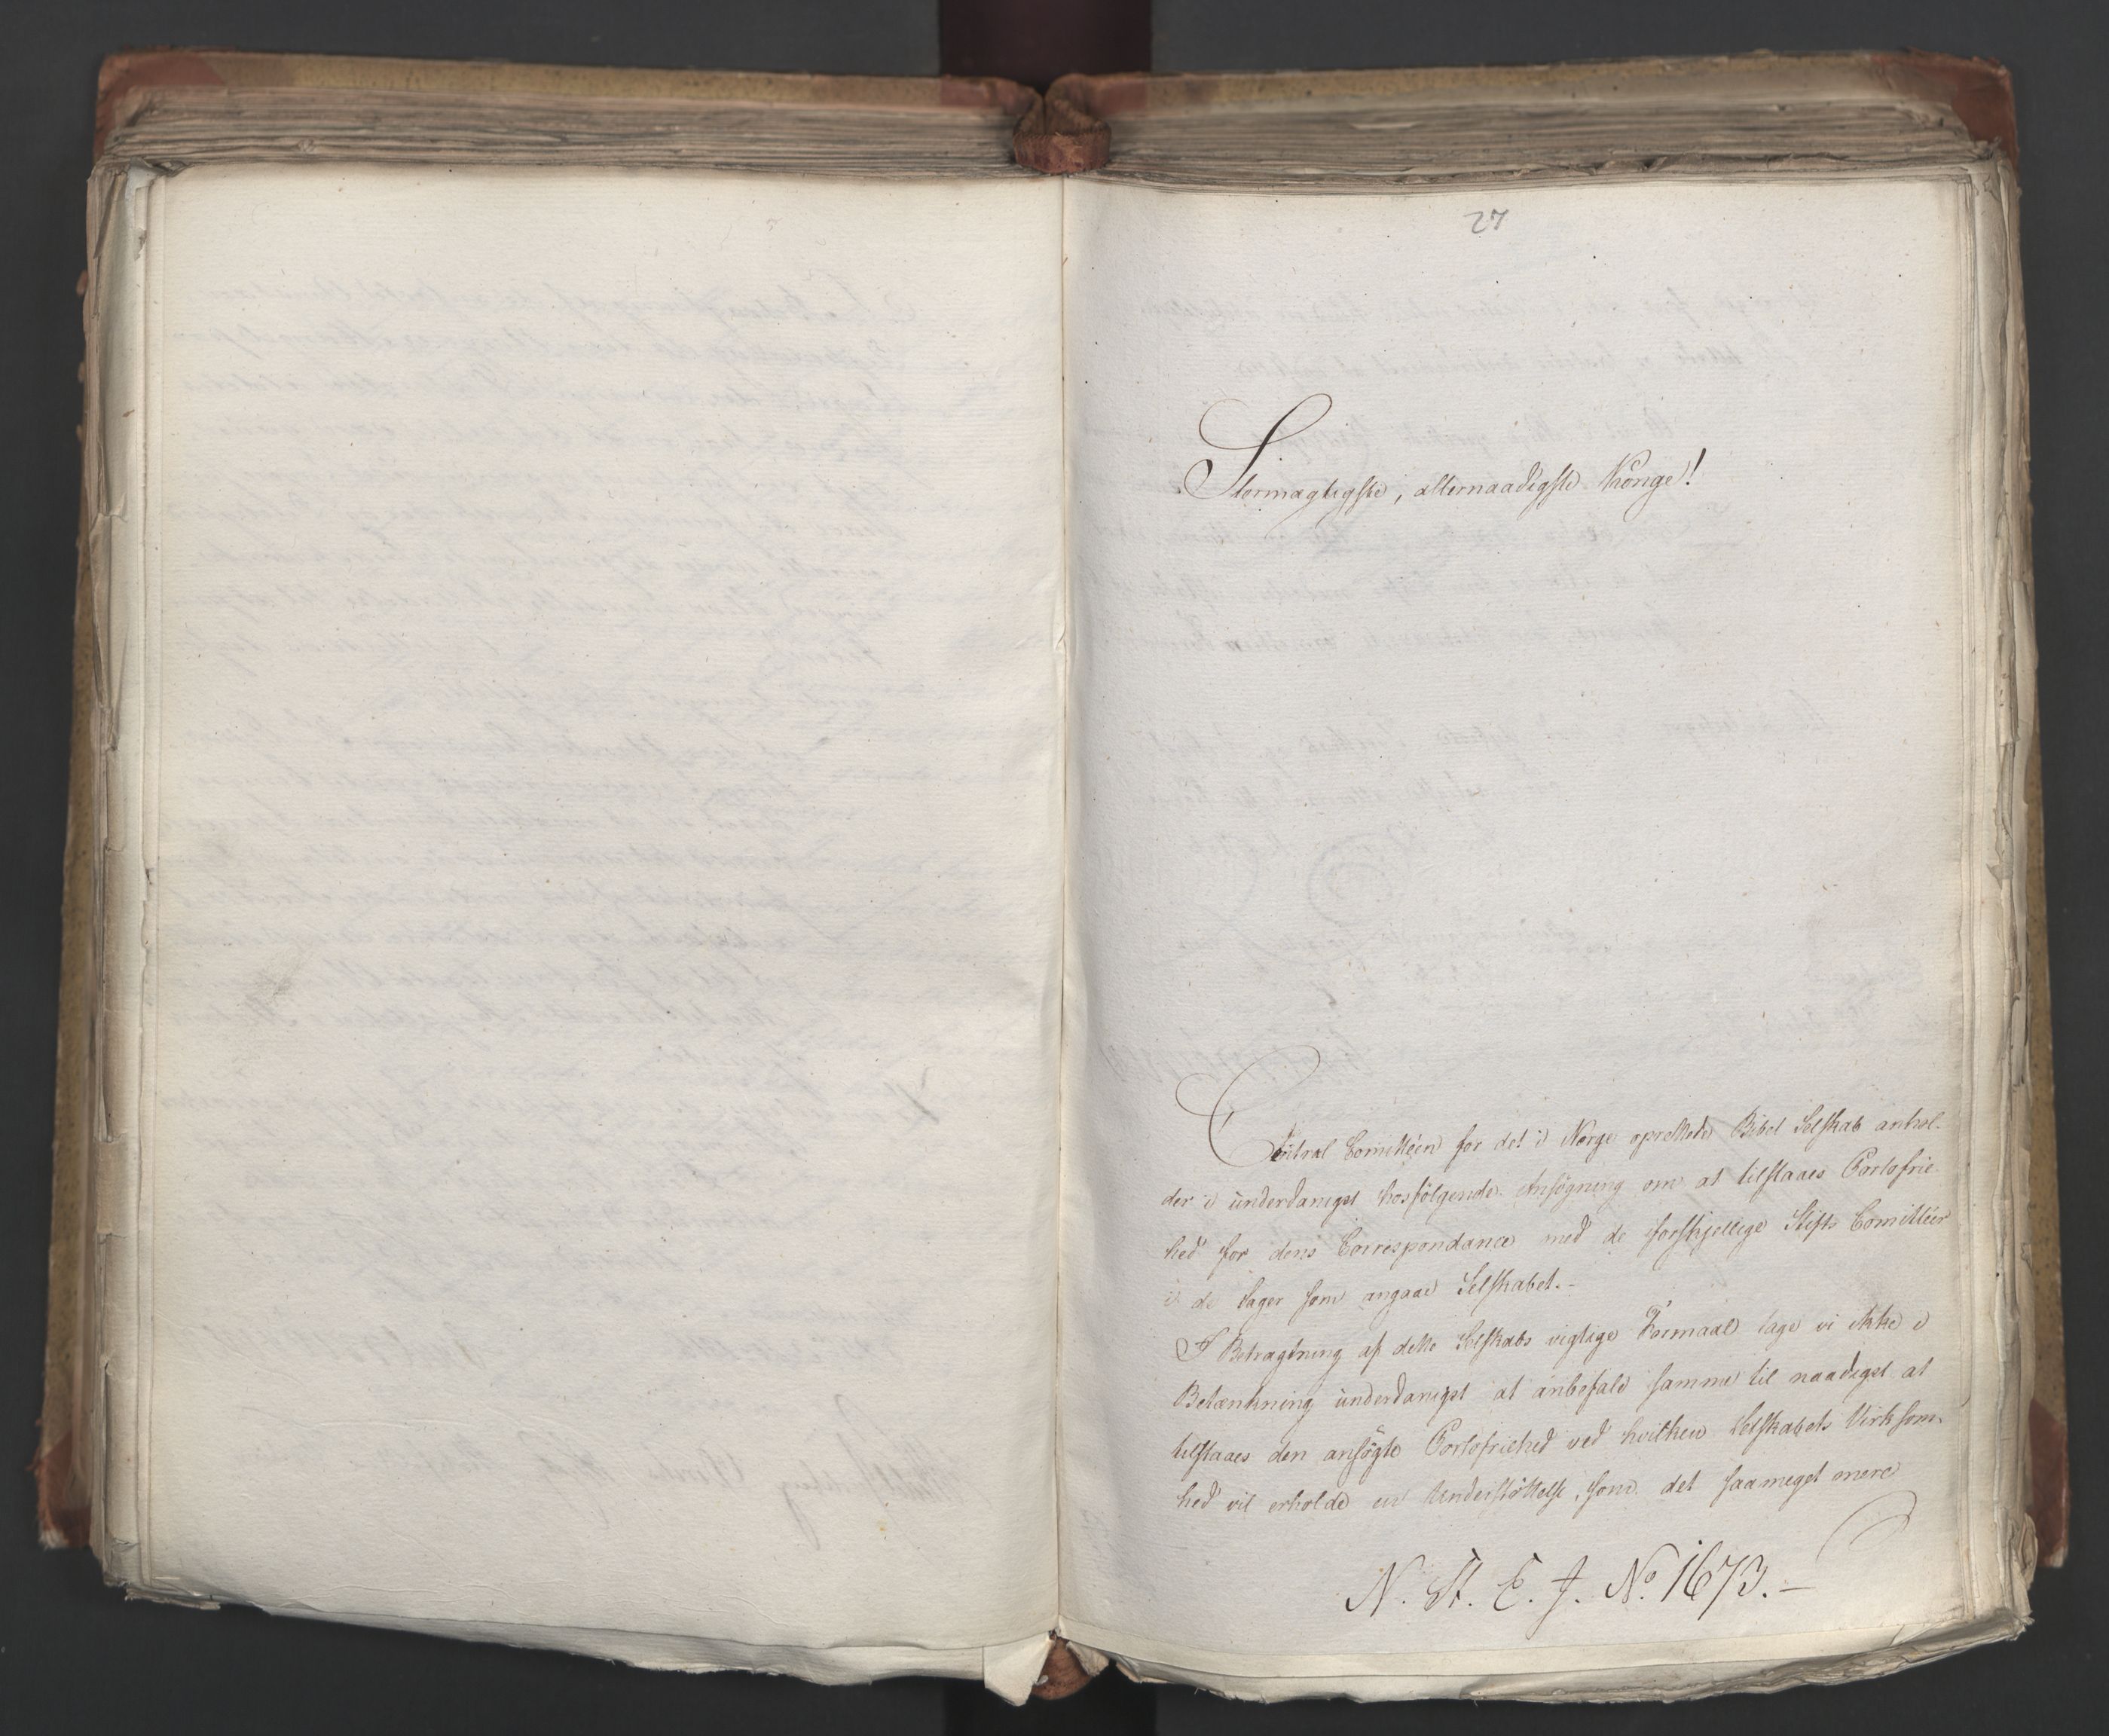 27
Stormægtigste, allernaadigste Konge!
Central Comitteen for det i Norge oprettede Bibel Selskab anhol-
der i underdanigst hosfölgende Ansögning om at tilstaaes Portofrie-
hed for dens Correspondance med de forskjellige Stifts Comitteer
i de Sager som angaae Selskabet.-
I Betragtning af dette Selskabs vigtige Formaal tage vi ikke i
Betænkning underdanigst at anbefale samme til naadigst at
tilstaaes den ansögte Portofriehed ved hvilken Selskabets Virksom-
hed vil erholde en Understöttelse, som det saameget mere
N. St. E. J. No. 1673.-